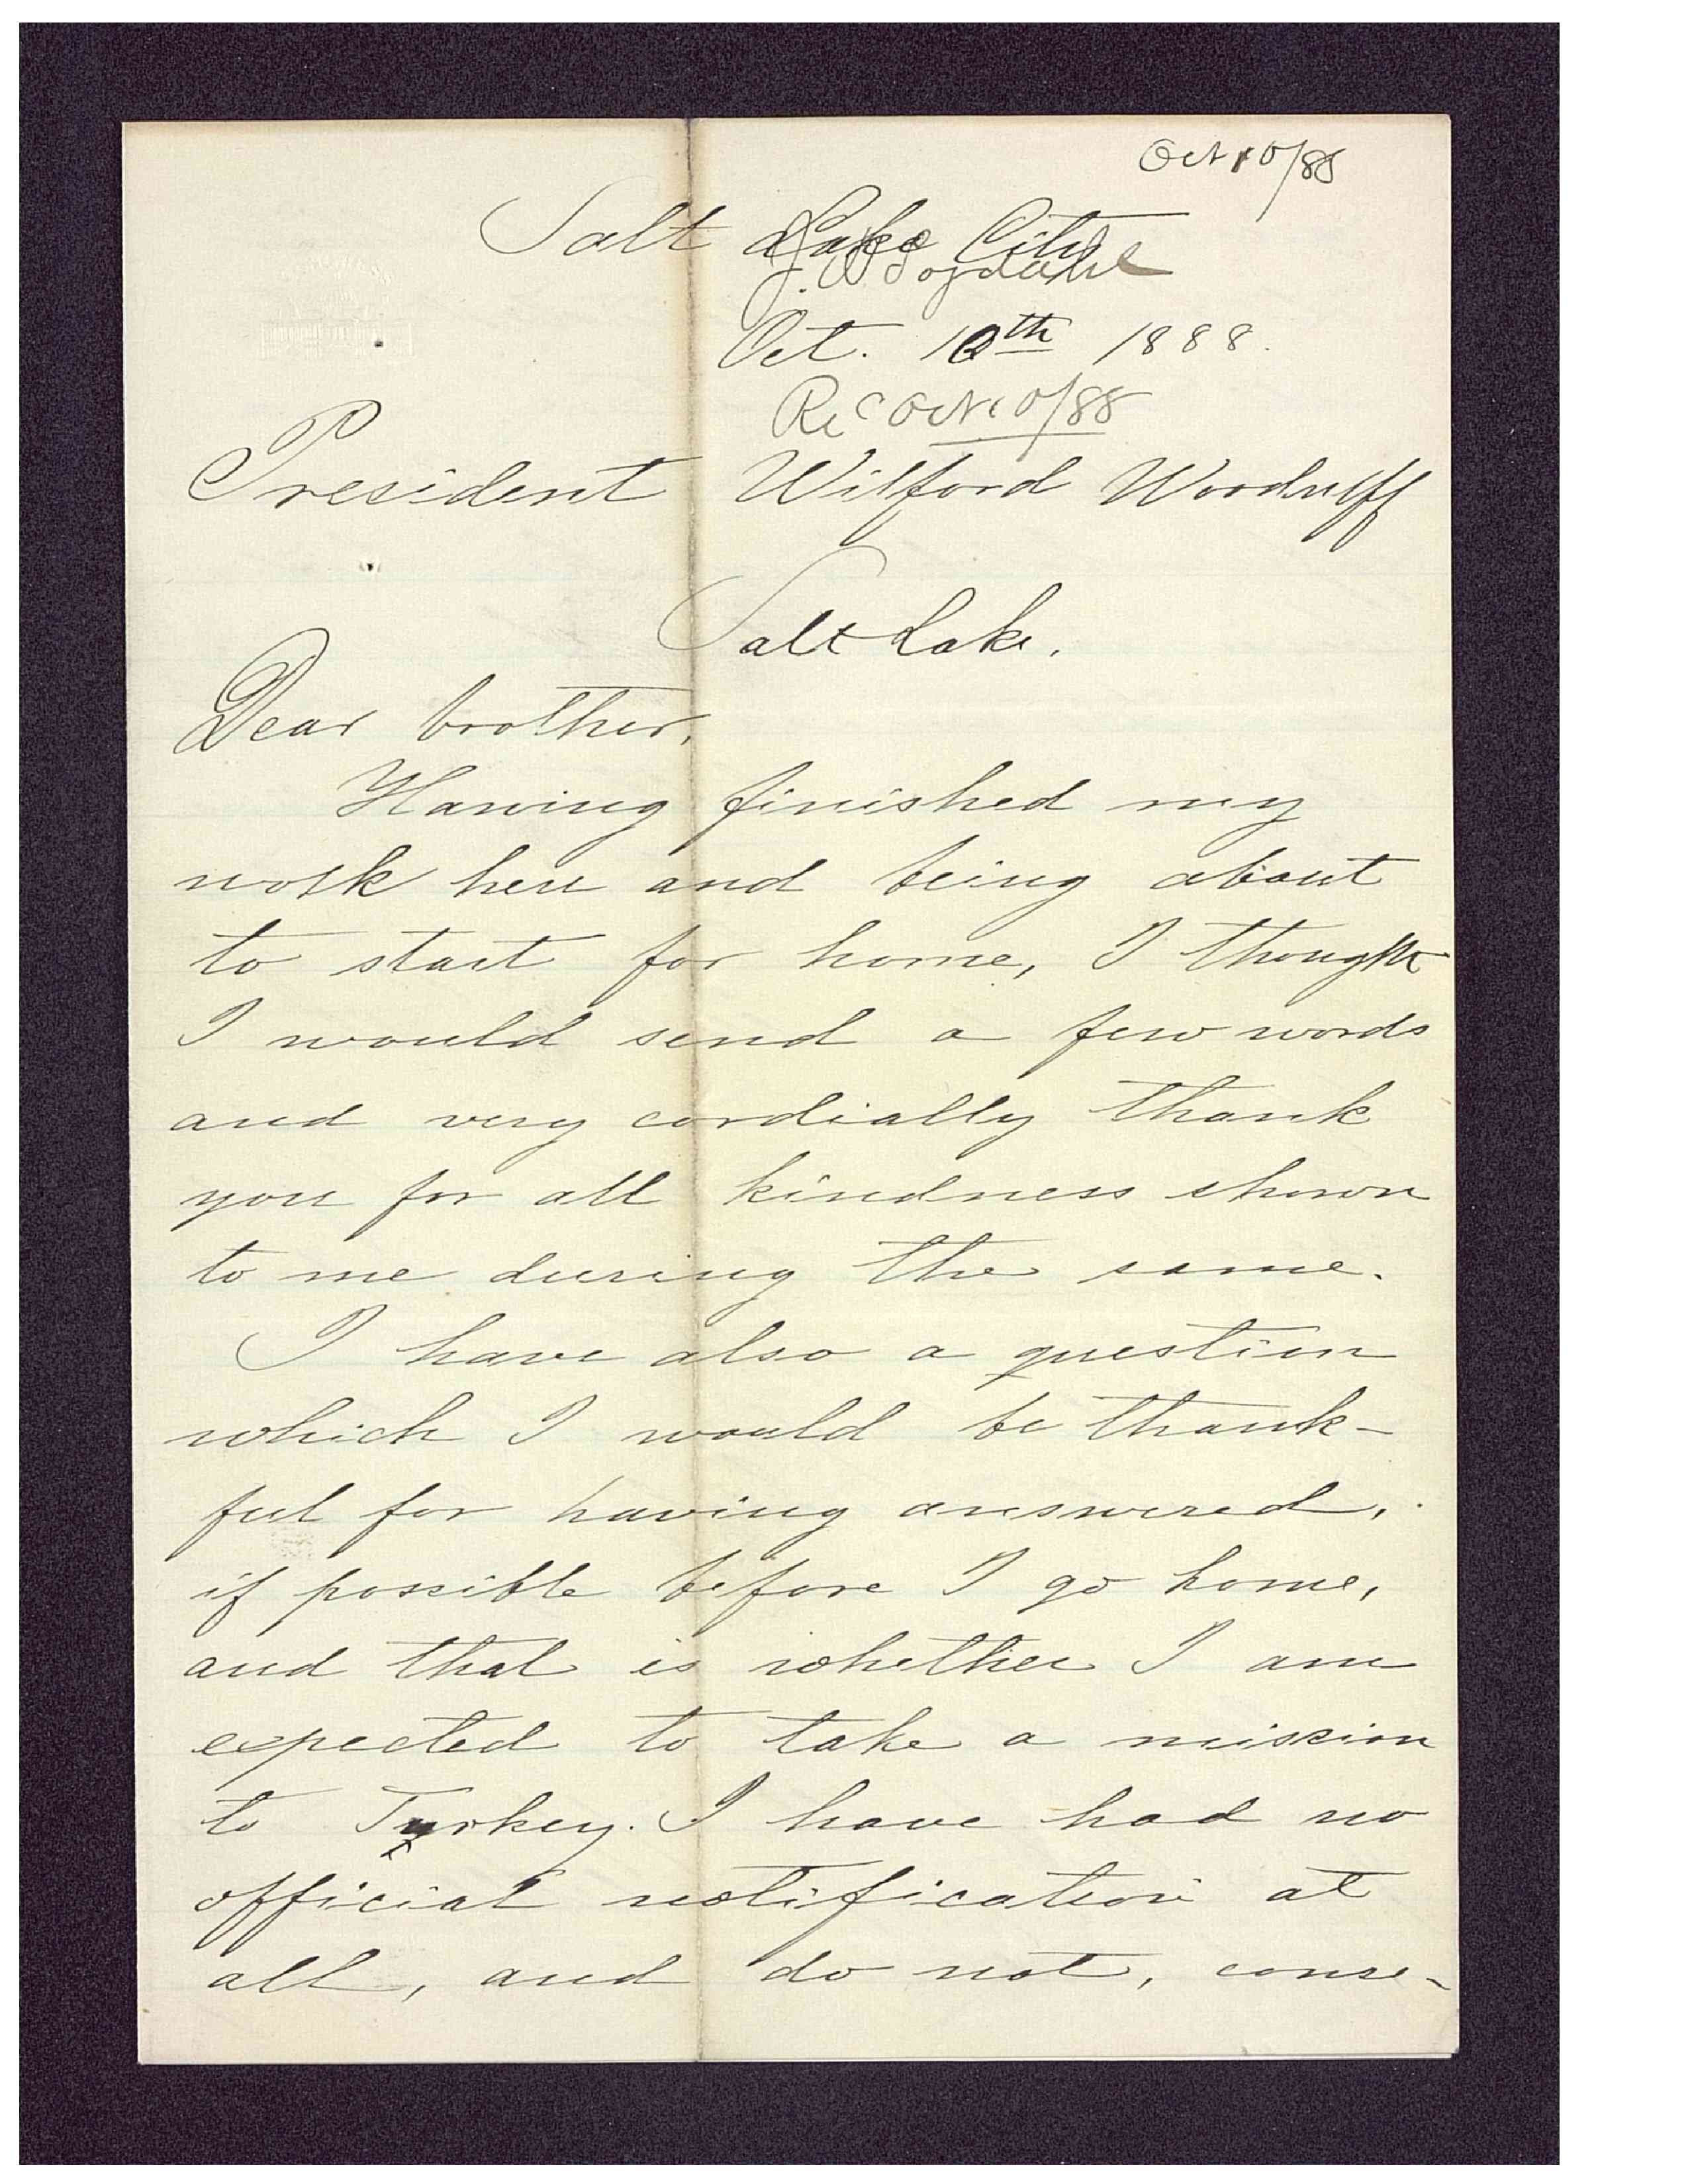 Oct 10/88
Salt Lake City
Oct. 10th 1888.
Rec Oct 10/88
President Wilford Woodruff
Salt Lake.
Dear brother,
Having finished my
work here and being about
to start for home, I thought
I would send a few words
and very cordially thank
you for all kindness shown
to me during the same.
I have also a question
which I would be thank-
ful for having answered,
if possible before I go home,
and that is whether I am
expected to take a mission
to Turkey. I have had no
official notification at
all, and do not, conse-